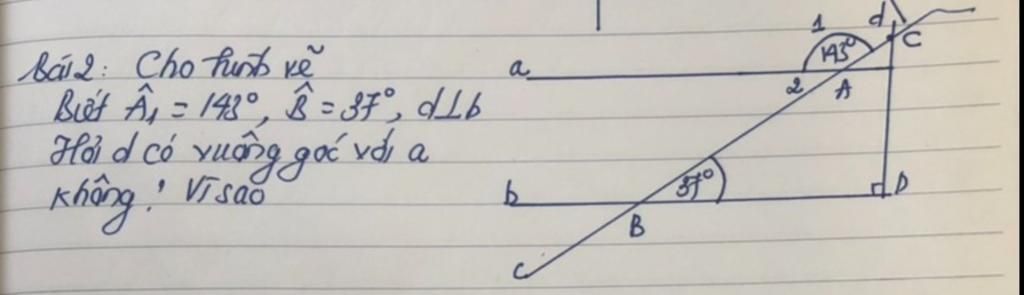 Bài 2: Cho hình vẽ
Biết Â₁ = 143°, B̂ = 37°, d⊥b
Hỏi d có vuông góc với a
không? Vì sao
1 d
143° C
a
2 A
37° D
b
B
c